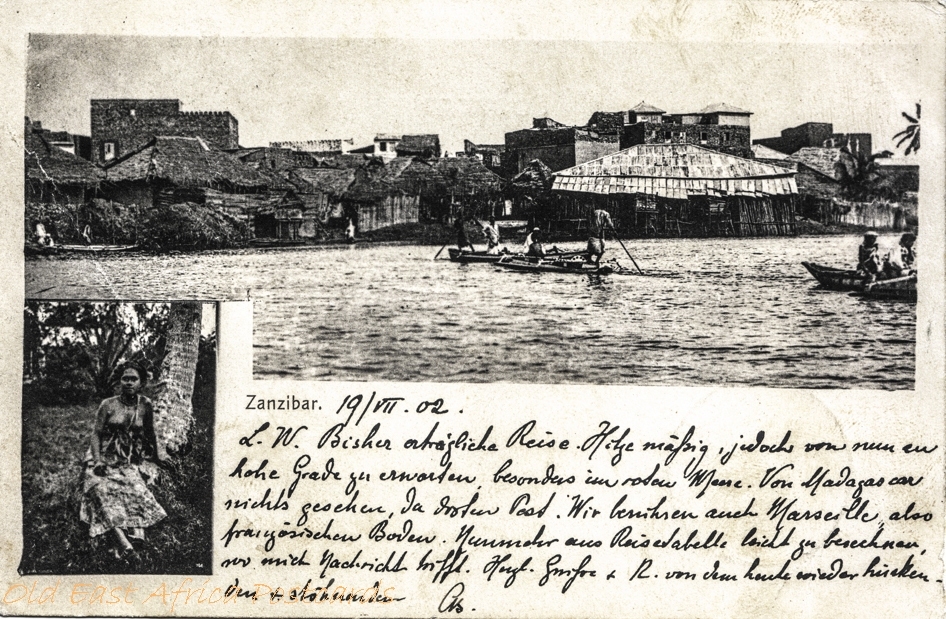 Zanzibar. 19/VII. 02.
L. W. Bisher erträgliche Reise. Hitze mäßig, jedoch von nun an
hohe Grade zu erwarten, besonders im roten Meere. Von Madagascar
nichts gesehen, da dorten Pest. Wir berühren auch Marseille, also
französischen Boden. Nunmehr aus Reisetabelle leicht zu berechnen,
wo mich Nachricht trifft. Herzl. Grüße + K. von dem heute wieder
den +
Old East Africa Postcards